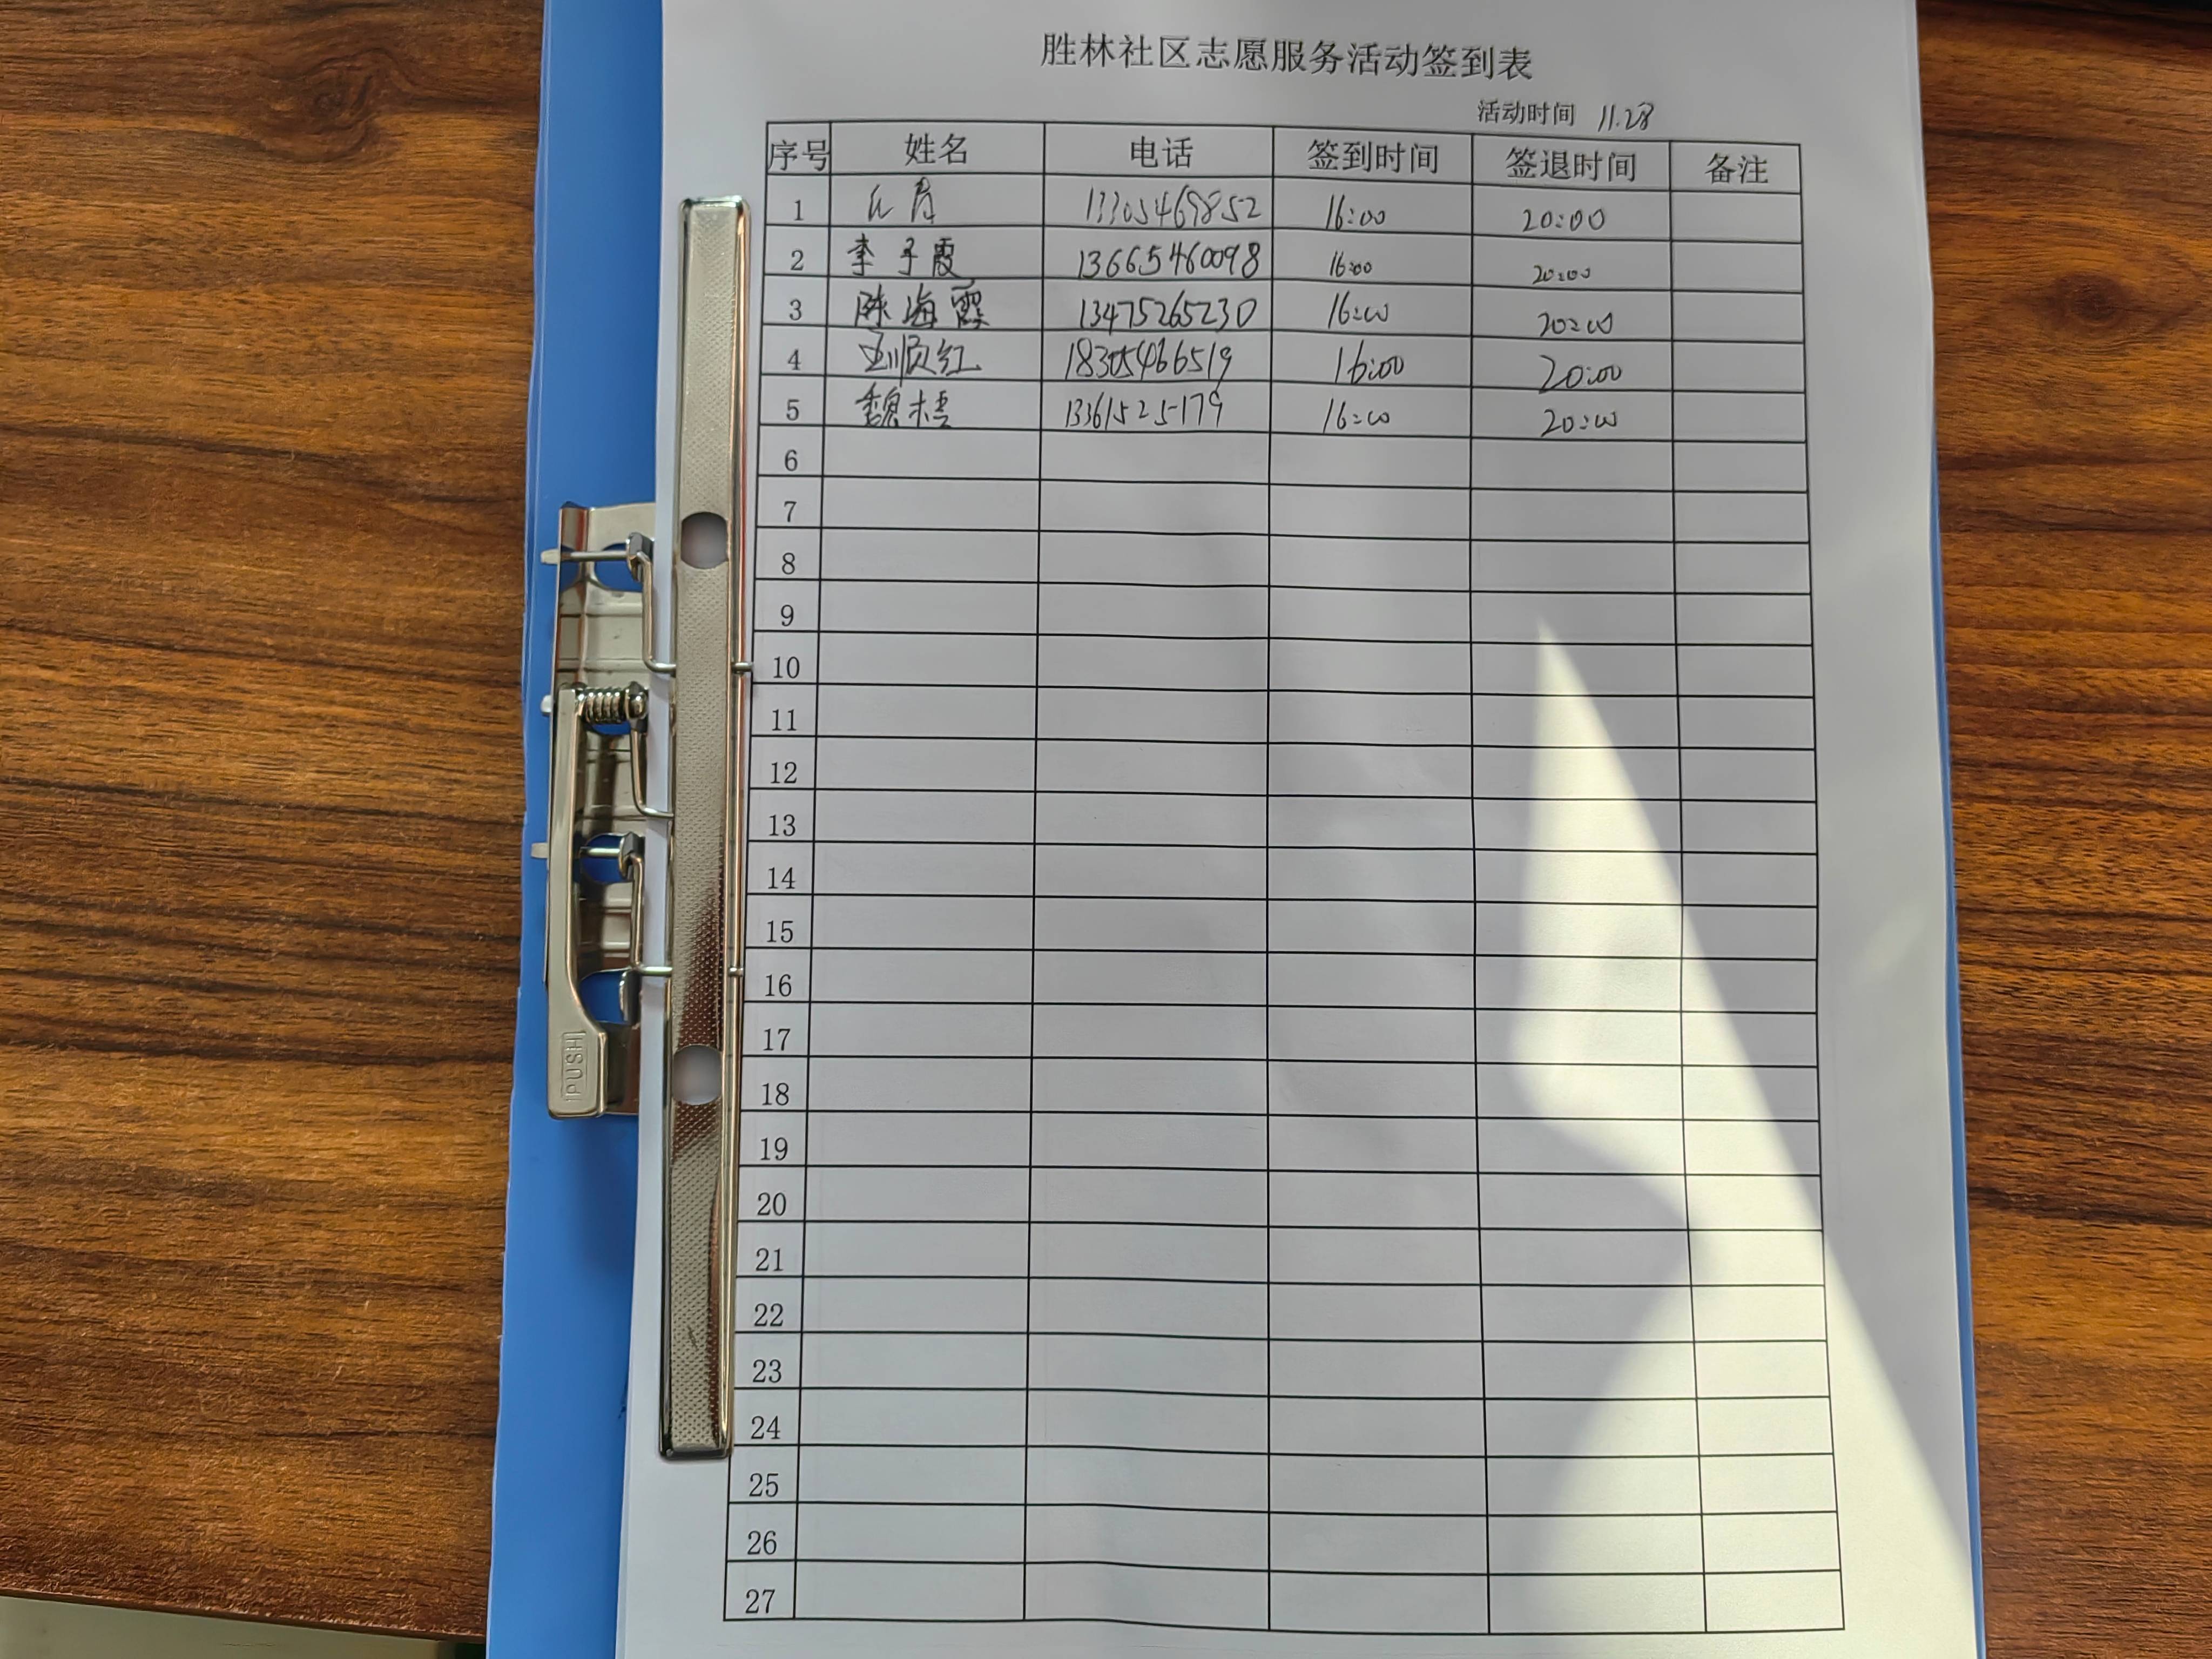 胜林社区志愿服务活动签到表
活动时间 11.28
序号 姓名 电话 签到时间 签退时间 备注
1 13305469852 16:00 20:00
2 李子霞 13665460098 16:00 20:00
3 陈海霞 13475265230 16:00 20:00
4 顺红 18305466519 16:00 20:00
5 魏 13361525179 16:00 20:00
6
7
8
9
10
11
12
13
14
15
16
17
18
19
20
21
22
23
24
25
26
27
PUSH